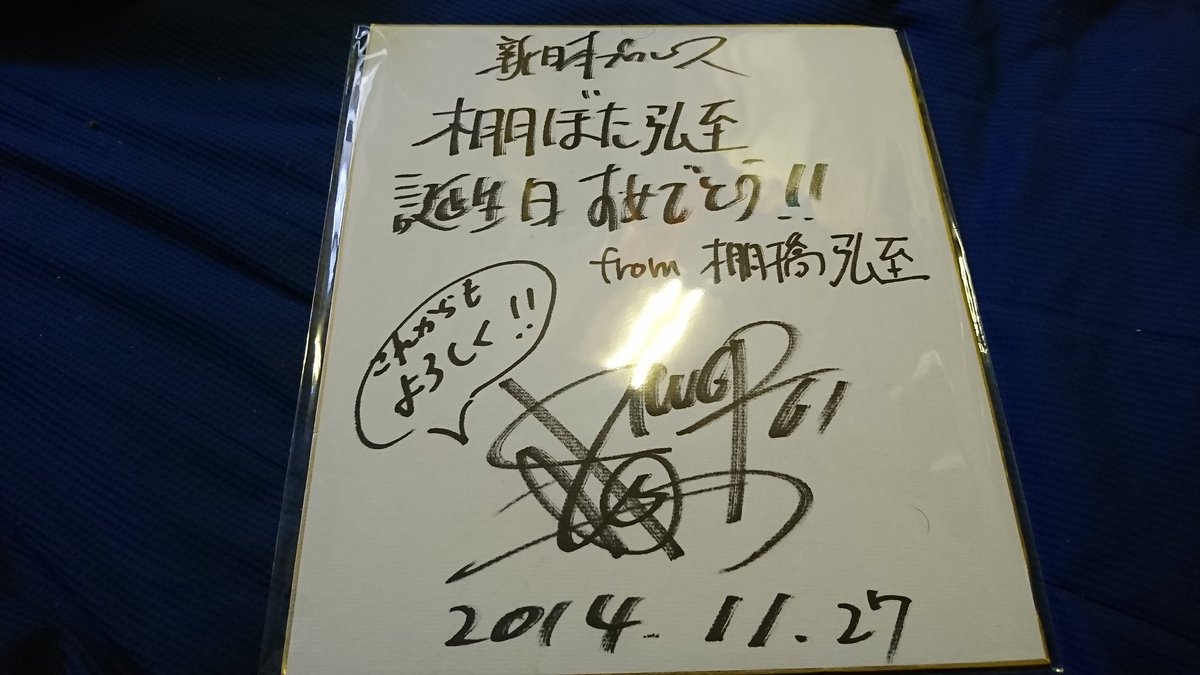 新日本プロレス
棚ぼた弘至
誕生日おめでとう!!
from 棚橋弘至
これからも
よろしく!!
IWGP
G1
2014.11.27